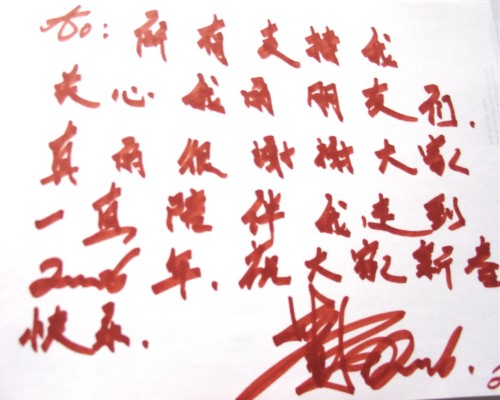 to: 所有支持我
关心我的朋友们.
真的很谢谢大家
一直陪伴我走到
2006年.祝大家新春
快乐.
2006.